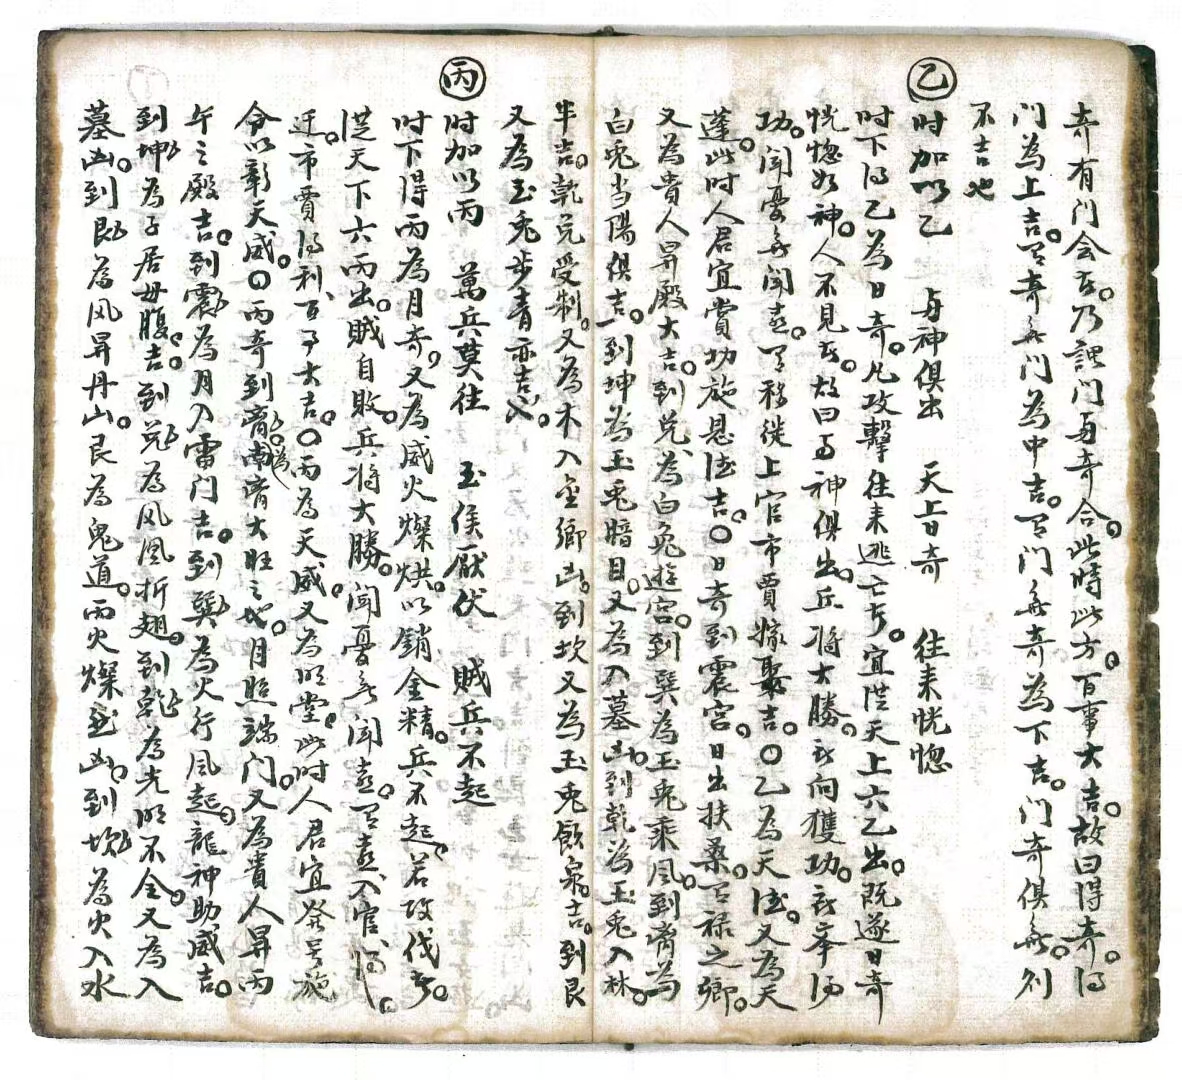 奇有门会者。乃謂门与奇合。此時此方。百事大吉。故曰得奇。得
门為上吉。有奇無门為中吉。有门無奇為下吉。门奇俱無。則
不吉也
乙
时加以乙 与神俱出 天上日奇 往来恍惚
时下得乙為日奇。凡攻擊往来逃亡者。宜從天上六乙出。既遂日奇
恍惚如神。人不見者。故曰与神俱出。兵将大勝。所向獲功。所奉得
功。闻憂無闻喜。有移徙上官市賈嫁娶吉。〇乙為天德。又為天
蓬。此时人君宜賞功施恩德吉。〇日奇到震宫。日出扶桑。有禄之鄉。
又為貴人昇殿大吉。到兑為白兔遊宫。到巽為玉兎乘风。到离為
白兎当陽俱吉。到坤為玉兎暗目。又為入墓凶。到乾為玉兎入林。
半吉。乾兑受制。又為木入金鄉凶。到坎又為玉兎飲泉吉。到艮
又為玉兎步青亦吉也。
丙
时加以丙 萬兵莫往 玉侯厭伏 賊兵不起
时下得丙為月奇。又為威火燦烘。以銷金精。兵不起。若攻伐者。
從天下六丙出。賊自敗。兵将大勝。闻憂無闻喜。有喜入官得
迁。市賈得利。百事大吉。〇丙為天威。又為明堂。此时人君宜發号施
令以彰天威。〇丙奇到离。為南离大旺之地。月照端门。又為貴人昇丙
午之殿吉。到震為月入雷门吉。到巽為火行风起。龍神助威吉。
到坤為子居母腹吉。到兑為风凰折翅。到乾為光明不全。又為入
墓凶。到艮為风昇丹山。艮為鬼道。丙火燦尅凶。到坎為火入水